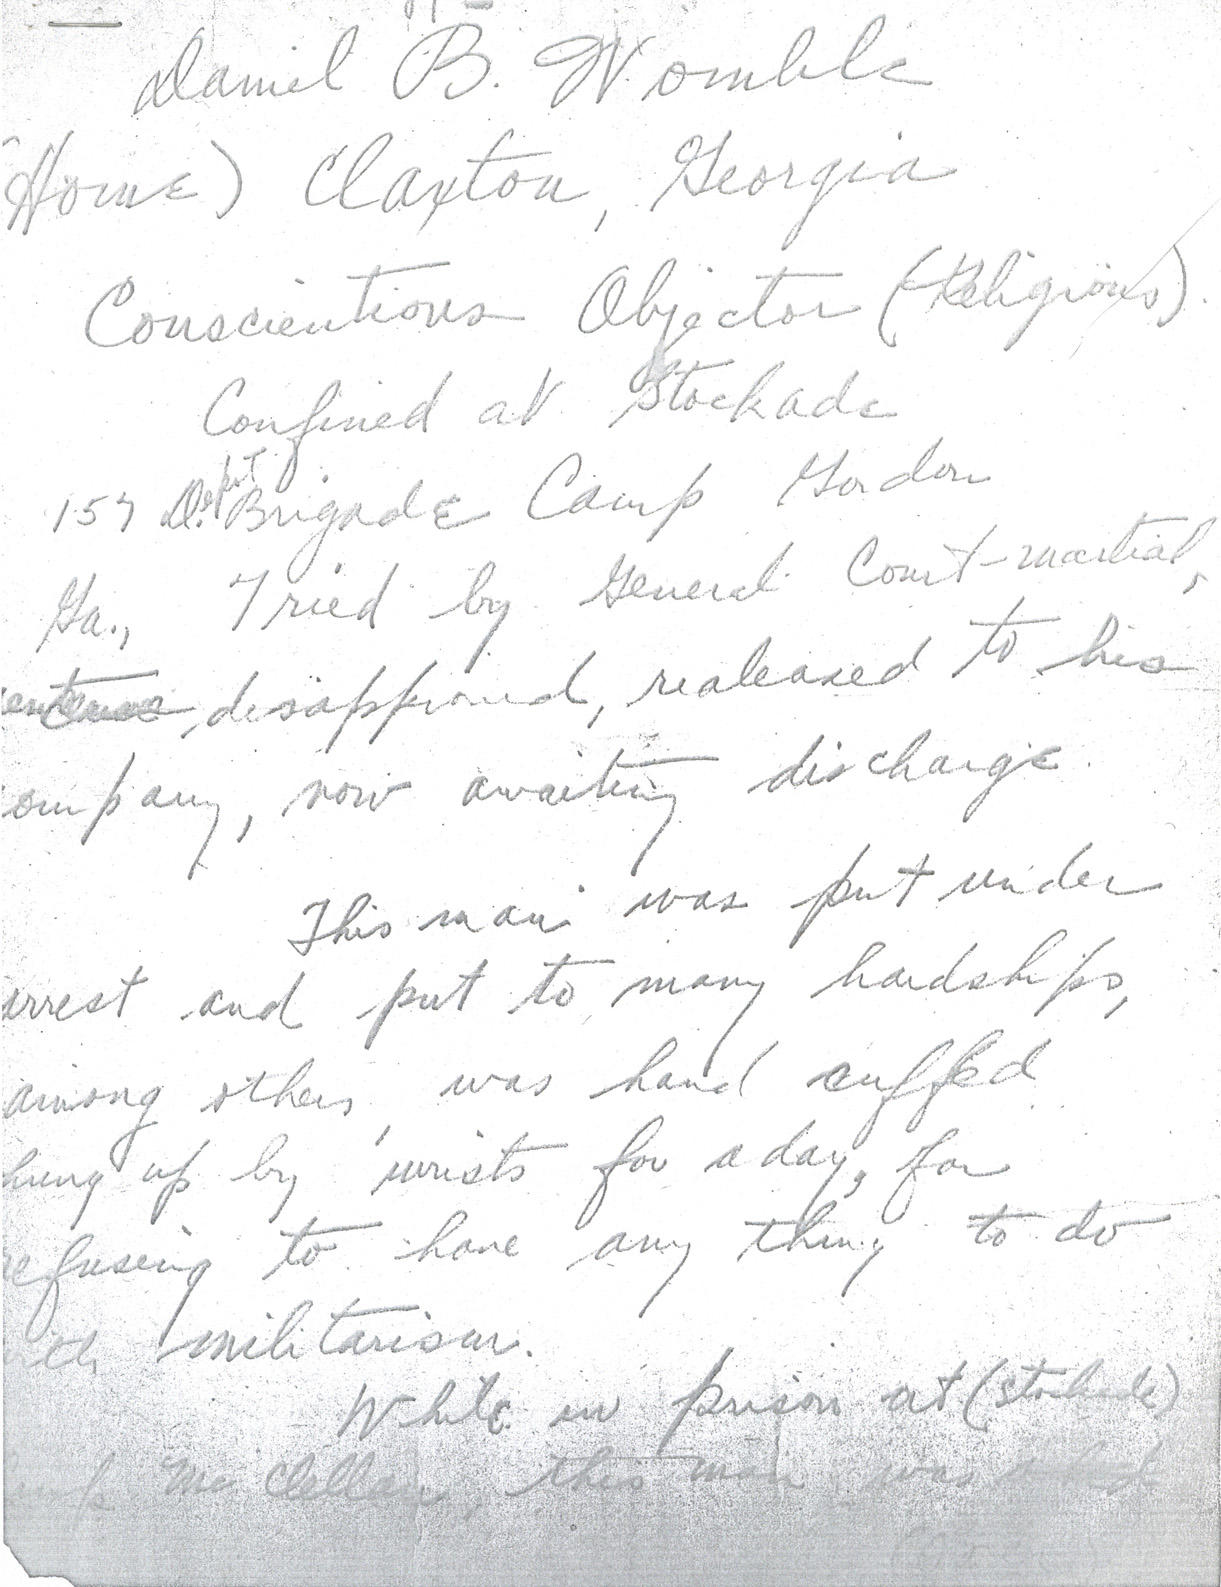 Daniel B. Womble
(Home) Claxton, Georgia
Conscientious Objector (Religious).
Confined at Stockade
157 Depot Brigade Camp Gordon
Ga., Tried by General Court-martial,
disapproved, realeased to his
ompany, now awaiting discharge.
This man was put under
arrest and put to many hardships,
among others, was hand cuffed
hung up by wrists for a day, for
refusing to have any thing to do
with militarism.
While in prison at (stockade)
Camp Mc Clellan, this man was